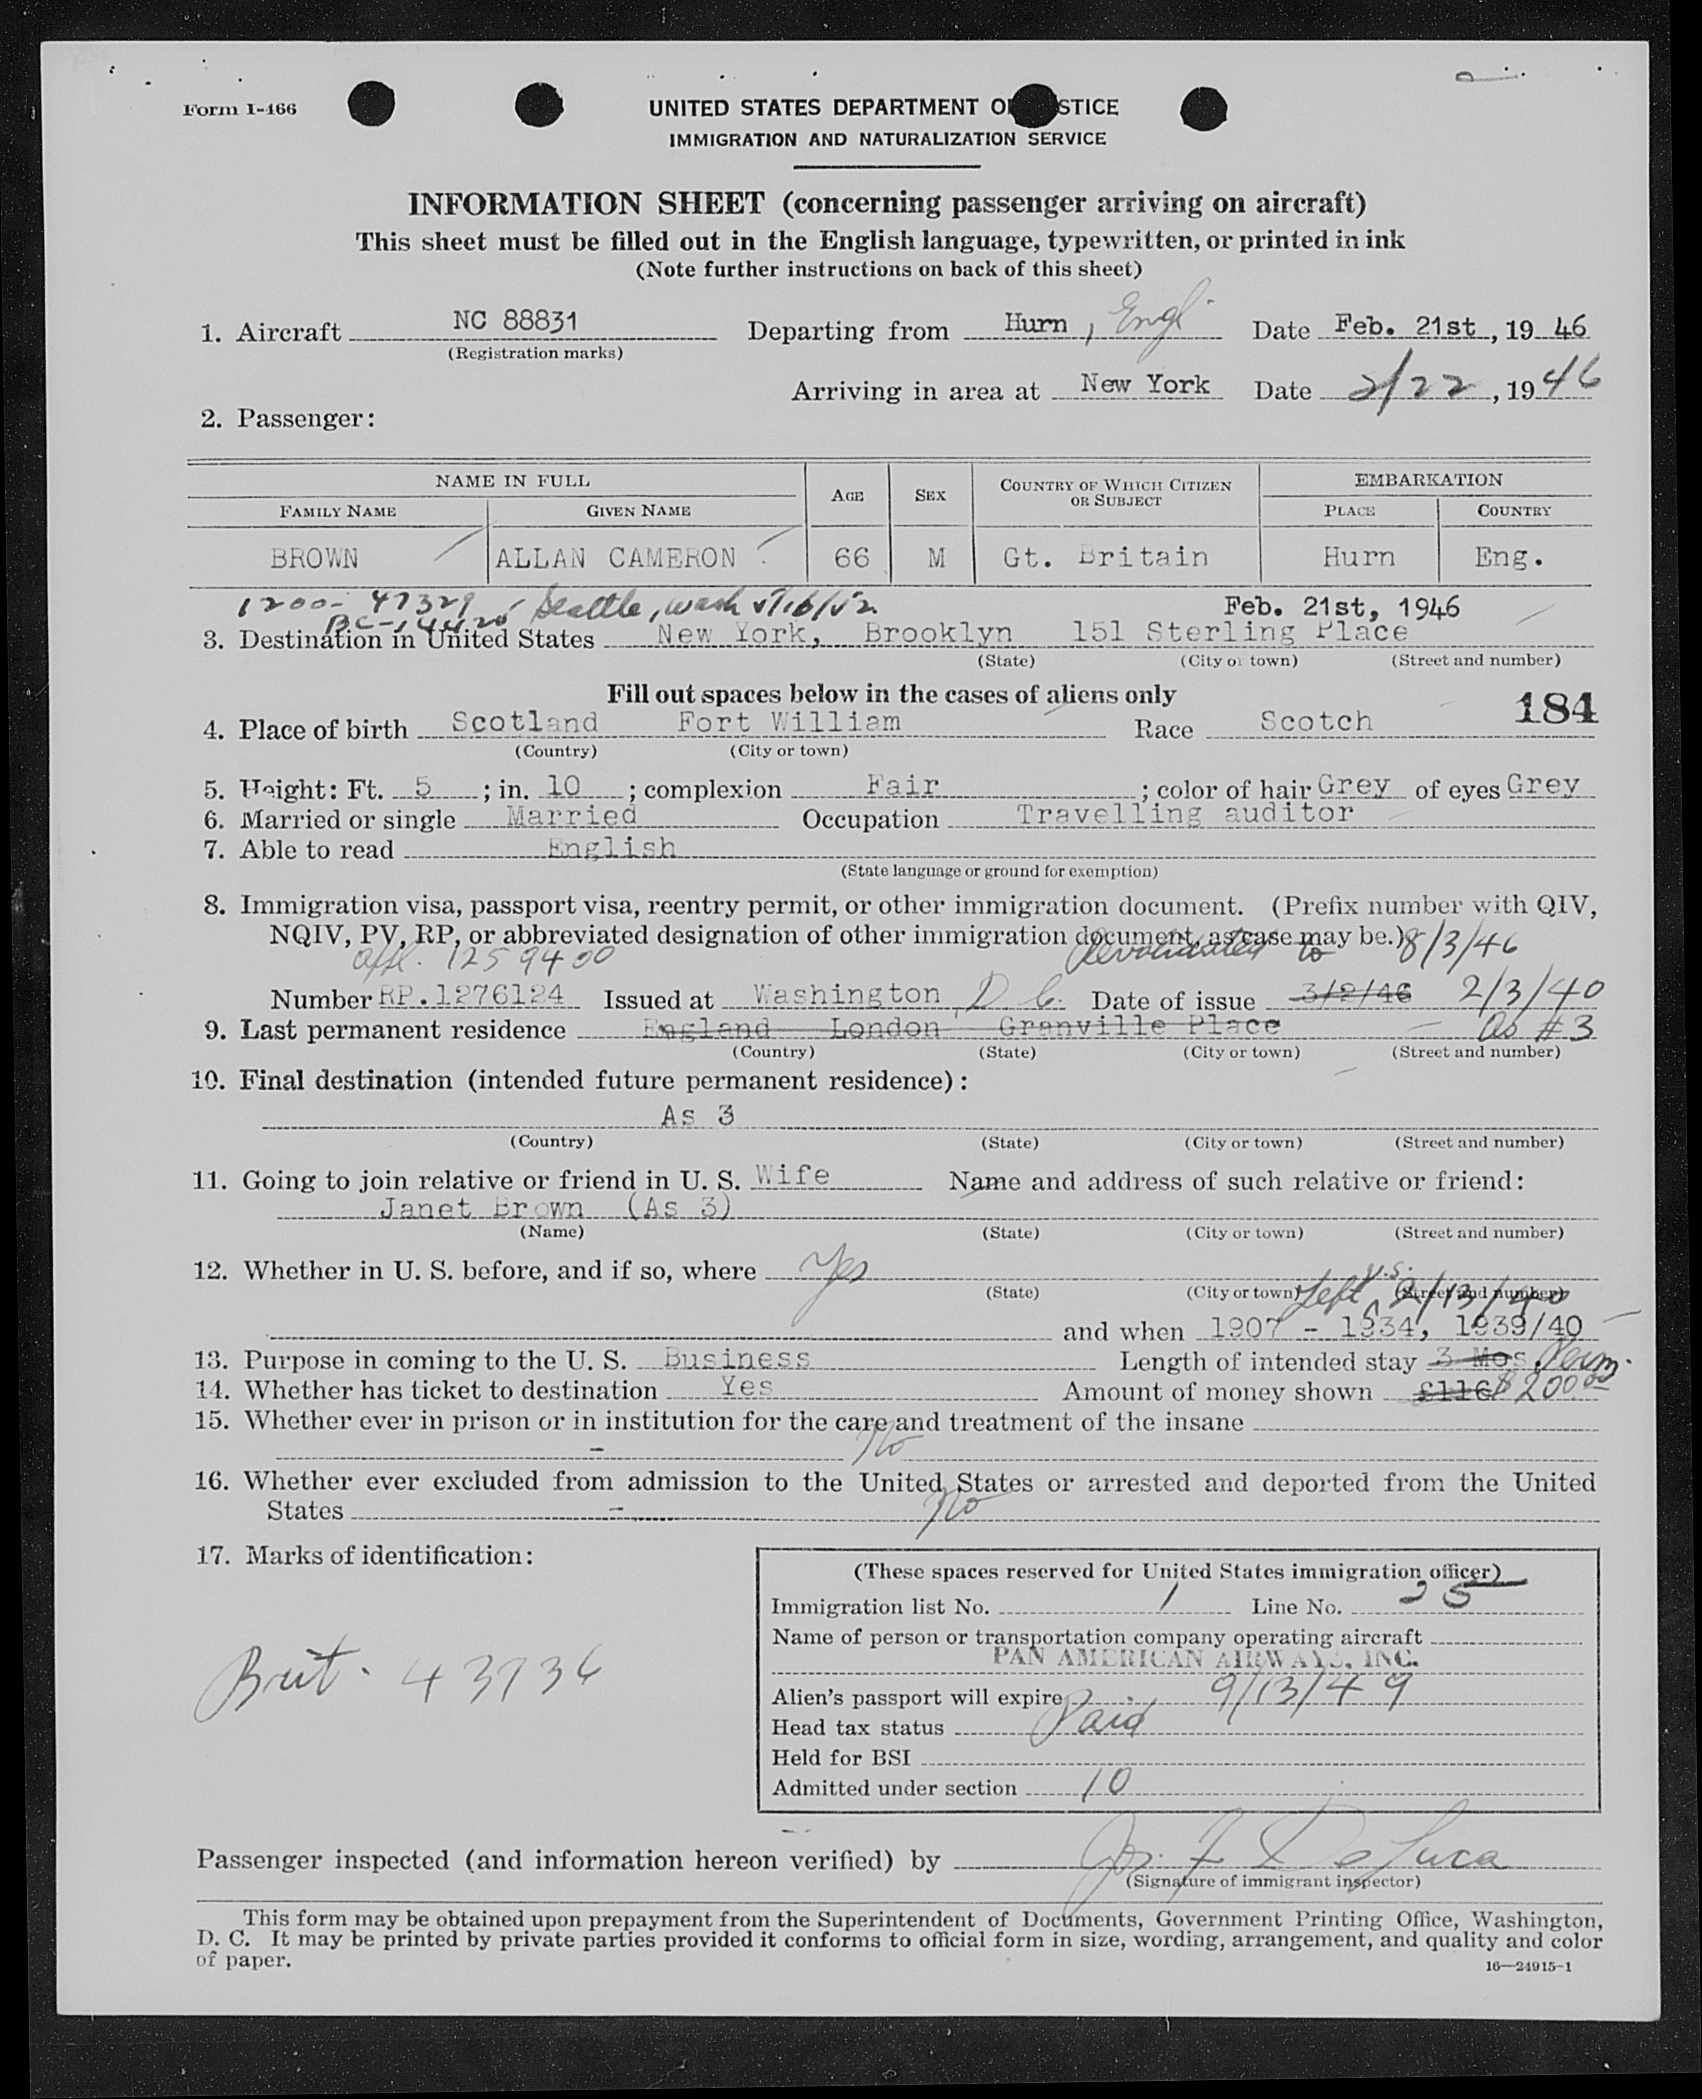 Form I-466
UNITED STATES DEPARTMENT O STICE
IMMIGRATION AND NATURALIZATION SERVICE
INFORMATION SHEET (concerning passenger arriving on aircraft)
This sheet must be filled out in the English language, typewritten, or printed in ink
(Note further instructions on back of this sheet)
1. Aircraft NC 88831 Departing from Hurn, Engl Date Feb. 21st, 19 46
(Registration marks)
Arriving in area at New York Date 2/22, 19 46
2. Passenger:
NAME IN FULL AGE SEX COUNTRY OF WHICH CITIZEN OR SUBJECT EMBARKATION
FAMILY NAME GIVEN NAME PLACE COUNTRY
BROWN ALLAN CAMERON 66 M Gt. Britain Hurn Eng.
1200-47329 Seattle, Wash Feb. 21st, 1946
3. Destination in United States New York, Brooklyn 151 Sterling Place
(State) (City or town) (Street and number)
Fill out spaces below in the cases of aliens only
184
4. Place of birth Scotland Fort William Race Scotch
(Country) (City or town)
5. Height: Ft. 5 ; in. 10 ; complexion Fair ; color of hair Grey of eyes Grey
6. Married or single Married Occupation Travelling auditor
7. Able to read English
(State language or ground for exemption)
8. Immigration visa, passport visa, reentry permit, or other immigration document. (Prefix number with QIV,
NQIV, PV, RP, or abbreviated designation of other immigration document, as case may be.)
1259400 Revalidated to 8/3/46
Number RP.1276124 Issued at Washington D C. Date of issue 3/2/46 2/3/40
9. Last permanent residence England London Granville Place As #3
(Country) (State) (City or town) (Street and number)
10. Final destination (intended future permanent residence):
As 3
(Country) (State) (City or town) (Street and number)
11. Going to join relative or friend in U. S. Wife Name and address of such relative or friend:
Janet Brown (As 3)
(Name) (State) (City or town) (Street and number)
12. Whether in U. S. before, and if so, where Yes
(State) (City or town) (Street and number)
Left U.S. 2/13/40
and when 1907 - 1934, 1939/40
13. Purpose in coming to the U. S. Business Length of intended stay 3 Mos. Perm.
14. Whether has ticket to destination Yes Amount of money shown £116 $200 00
15. Whether ever in prison or in institution for the care and treatment of the insane
- No
16. Whether ever excluded from admission to the United States or arrested and deported from the United
States - No
17. Marks of identification:
(These spaces reserved for United States immigration officer)
Immigration list No. 1 Line No. 25
Name of person or transportation company operating aircraft
PAN AMERICAN AIRWAYS, INC.
Brit. 43736
Alien's passport will expire 9/13/49
Head tax status Paid
Held for BSI
Admitted under section 10
Passenger inspected (and information hereon verified) by Jos. F De Luca
(Signature of immigrant inspector)
This form may be obtained upon prepayment from the Superintendent of Documents, Government Printing Office, Washington,
D. C. It may be printed by private parties provided it conforms to official form in size, wording, arrangement, and quality and color
of paper.
16—24915-1